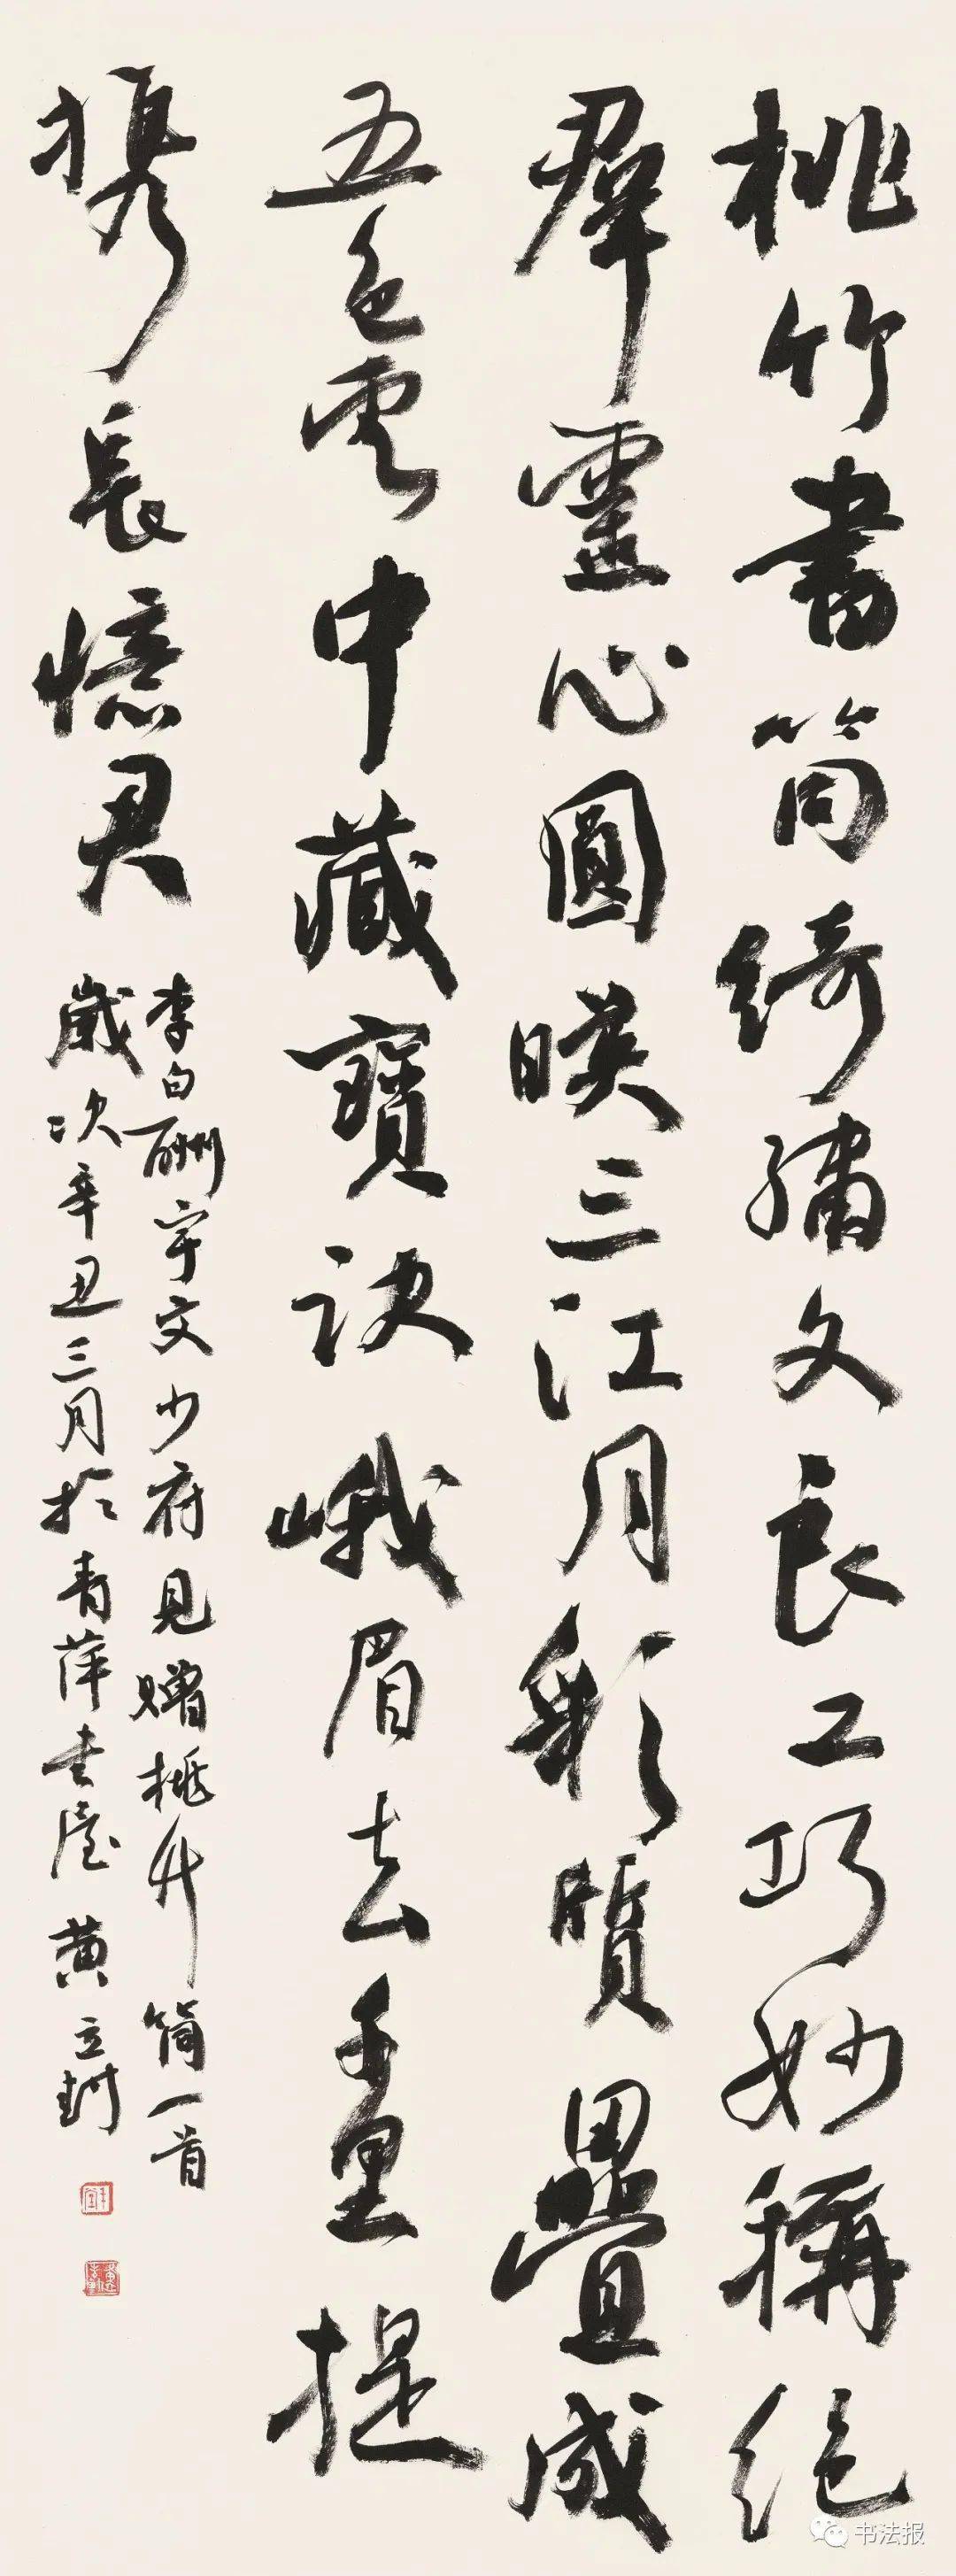 桃竹書筒綺繡文良工巧妙稱絶
羣靈心圓映三江月彩質疊成
五色雲中藏寶訣峨眉去千里提
携長憶君
李白酬宇文少府見贈桃竹筒一首
歲次辛丑三月於青萍書屋 黄立
书法报